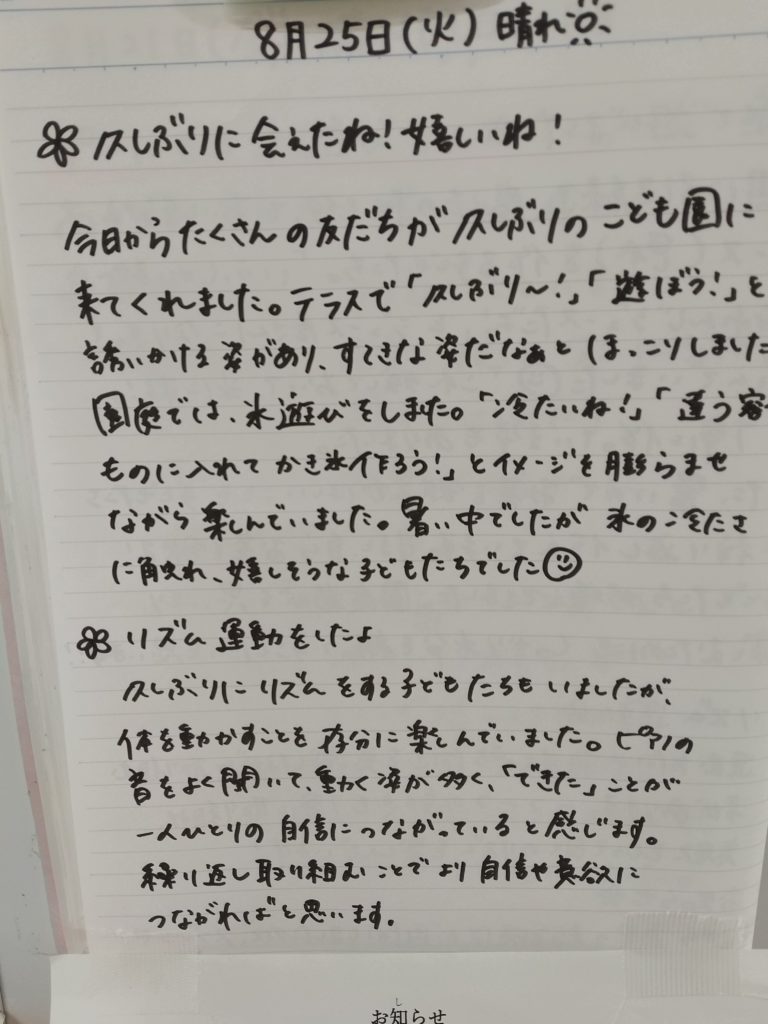 8月25日(火) 晴れ
久しぶりに会えたね!嬉しいね!
今日からたくさんの友だちが久しぶりのこども園に
来てくれました。テラスで「久しぶり〜!」「遊ぼう!」と
誘いかける姿があり、すてきな姿だなぁとほっこりしました
園庭では、氷遊びをしました。「冷たいね!」「違う容
ものに入れてかき氷作ろう!」とイメージを膨らませ
ながら楽しんでいました。暑い中でしたが氷の冷たさ
に触れ、嬉しそうな子どもたちでした
リズム運動をしたよ
久しぶりにリズムをする子どもたちもいましたが、
体を動かすことを存分に楽しんでいました。ピアノの
音をよく聞いて、動く姿が多く、「できた」ことが
一人ひとりの自信につながっていると感じます。
繰り返し取り組むことでより自信や意欲に
つながればと思います。
お知らせ
し